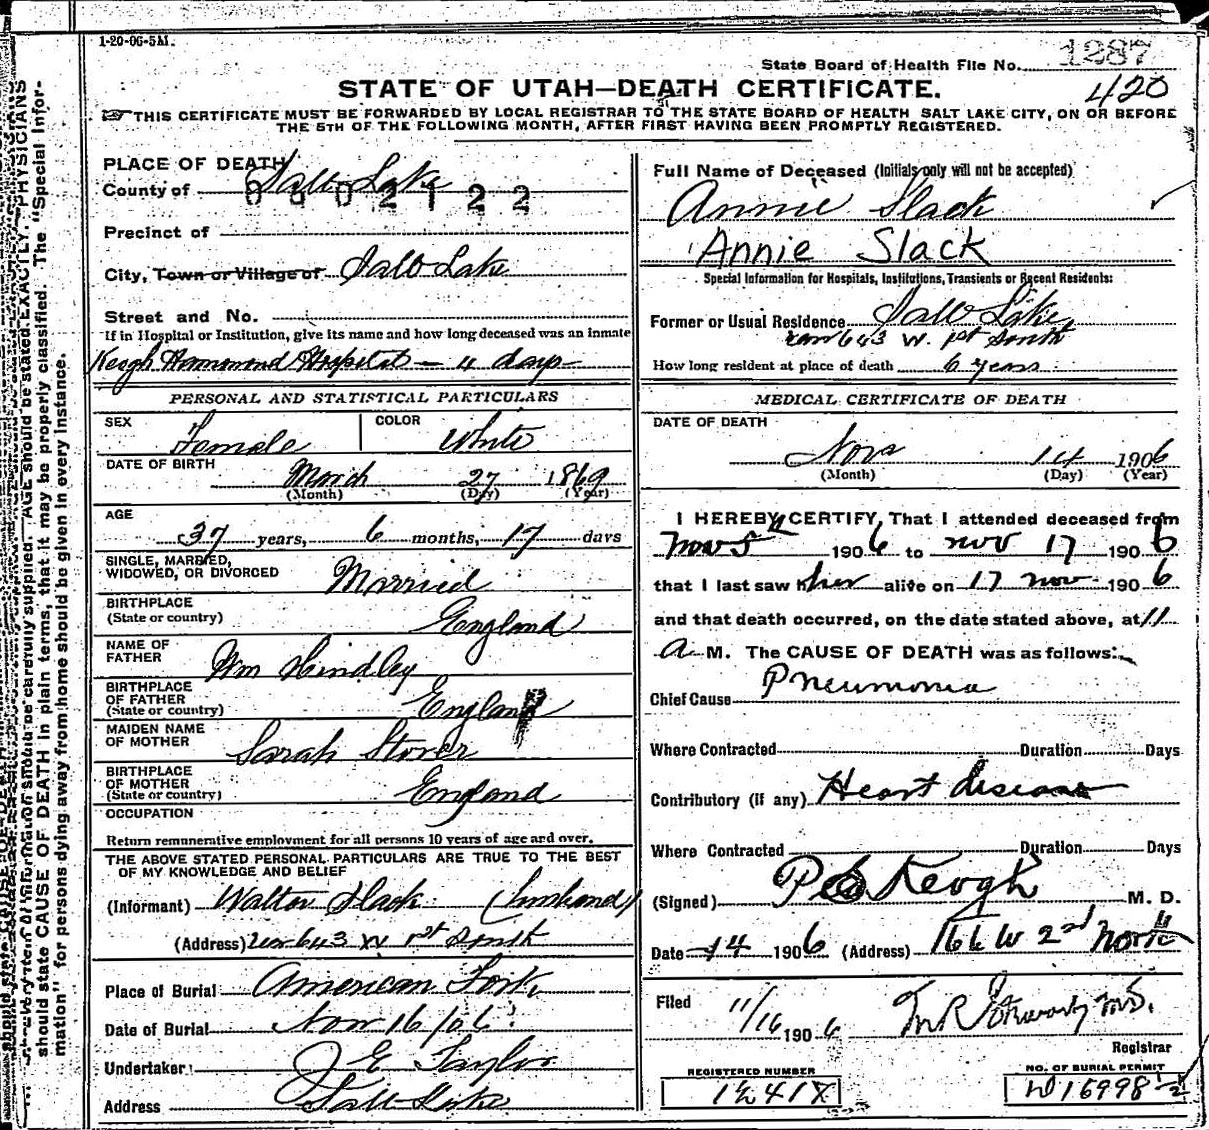 1-20-06-5M.
State Board of Health File No. 1287
420
STATE OF UTAH—DEATH CERTIFICATE.
THIS CERTIFICATE MUST BE FORWARDED BY LOCAL REGISTRAR TO THE STATE BOARD OF HEALTH SALT LAKE CITY, ON OR BEFORE
THE 5TH OF THE FOLLOWING MONTH, AFTER FIRST HAVING BEEN PROMPTLY REGISTERED.
PLACE OF DEATH
County of Salt Lake
0402122
Precinct of
City, Town or Village of Salt Lake
Street and No.
If in Hospital or Institution, give its name and how long deceased was an inmate
Keogh Hammond Hospital — 4 days
PERSONAL AND STATISTICAL PARTICULARS
SEX Female COLOR White
DATE OF BIRTH March 27 1869
(Month) (Day) (Year)
AGE
37 years, 6 months, 17 days
SINGLE, MARRIED,
WIDOWED, OR DIVORCED Married
BIRTHPLACE
(State or country) England
NAME OF
FATHER Wm Hindley
BIRTHPLACE
OF FATHER
(State or country) England
MAIDEN NAME
OF MOTHER Sarah Storer
BIRTHPLACE
OF MOTHER
(State or country) England
OCCUPATION
Return remunerative employment for all persons 10 years of age and over.
THE ABOVE STATED PERSONAL PARTICULARS ARE TRUE TO THE BEST
OF MY KNOWLEDGE AND BELIEF
(Informant) Walter Slack (husband)
(Address) 643 W 1st South
Place of Burial American Fork
Date of Burial Nov 16/06
Undertaker J E Taylor
Address Salt Lake
Full Name of Deceased (Initials only will not be accepted)
Annie Slack
Annie Slack
Special Information for Hospitals, Institutions, Transients or Recent Residents:
Former or Usual Residence Salt Lake
643 W. 1st South
How long resident at place of death 6 years
MEDICAL CERTIFICATE OF DEATH
DATE OF DEATH
Nov 14 1906
(Month) (Day) (Year)
I HEREBY CERTIFY, That I attended deceased from
Nov 5 1906 to Nov 17 1906
that I last saw her alive on 17 Nov 1906
and that death occurred, on the date stated above, at 11
A M. The CAUSE OF DEATH was as follows:
Chief Cause Pneumonia
Where Contracted Duration Days
Contributory (if any) Heart disease
Where Contracted Duration Days
(Signed) P S Keogh M. D.
Date 14 1906 (Address) 166 W 2nd North
Filed 11/16 1906
Registrar
REGISTERED NUMBER
NO. OF BURIAL PERMIT
should state CAUSE OF DEATH in plain terms, that it may be properly classified. The "Special Infor-
mation" for persons dying away from home should be given in every instance.